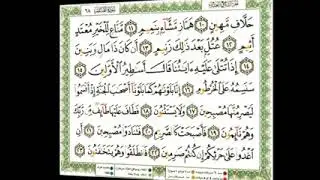 حَلَّافٍ مَّهِينٍ ١٠ هَمَّازٍ مَّشَّاءٍ بِنَمِيمٍ ١١ مَّنَّاعٍ لِّلْخَيْرِ مُعْتَدٍ
أَثِيمٍ ١٢ عُتُلٍّ بَعْدَ ذَٰلِكَ زَنِيمٍ ١٣ أَن كَانَ ذَا مَالٍ وَبَنِينَ
١٤ إِذَا تُتْلَىٰ عَلَيْهِ ءَايَٰتُنَا قَالَ أَسَٰطِيرُ ٱلْأَوَّلِينَ ١٥
سَنَسِمُهُۥ عَلَى ٱلْخُرْطُومِ ١٦ إِنَّا بَلَوْنَٰهُمْ كَمَا بَلَوْنَآ أَصْحَٰبَ ٱلْجَنَّةِ إِذْ أَقْسَمُوا۟
لَيَصْرِمُنَّهَا مُصْبِحِينَ ١٧ وَلَا يَسْتَثْنُونَ ١٨ فَطَافَ عَلَيْهَا طَآئِفٌ مِّن رَّبِّكَ
وَهُمْ نَآئِمُونَ ١٩ فَأَصْبَحَتْ كَٱلصَّرِيمِ ٢٠ فَتَنَادَوْا۟ مُصْبِحِينَ ٢١ أَنِ
ٱغْدُوا۟ عَلَىٰ حَرْثِكُمْ إِن كُنتُمْ صَٰرِمِينَ ٢٢ فَٱنطَلَقُوا۟ وَهُمْ يَتَخَٰفَتُونَ ٢٣